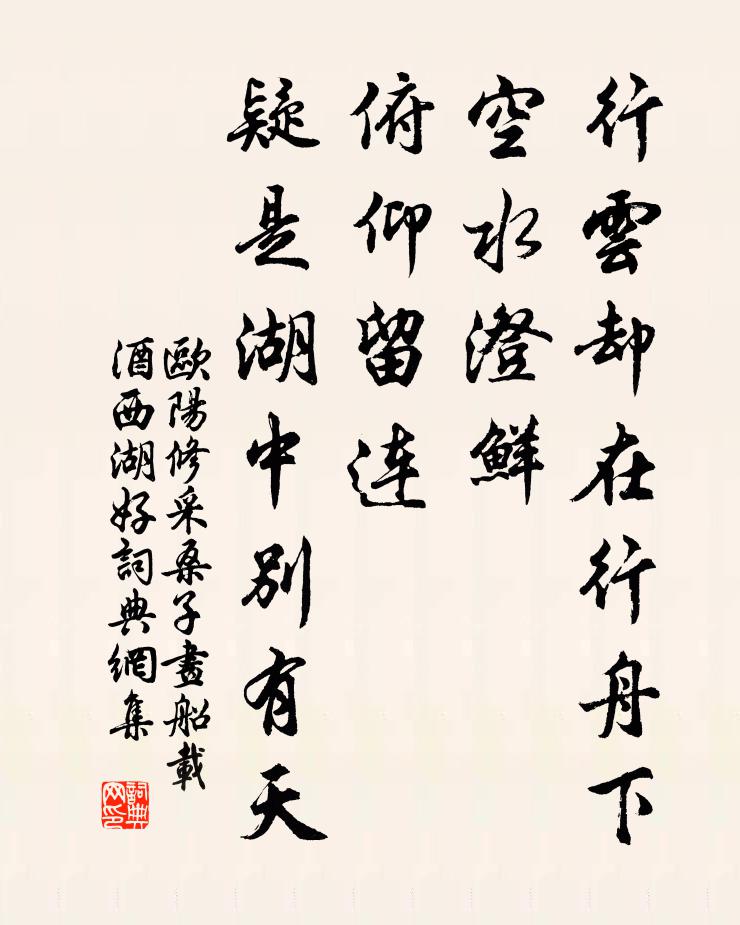 行雲却在行舟下
空水澄鮮
俯仰留連
疑是湖中別有天
歐陽修采桑子畫船載
酒西湖好詞典網集
詞典
网印